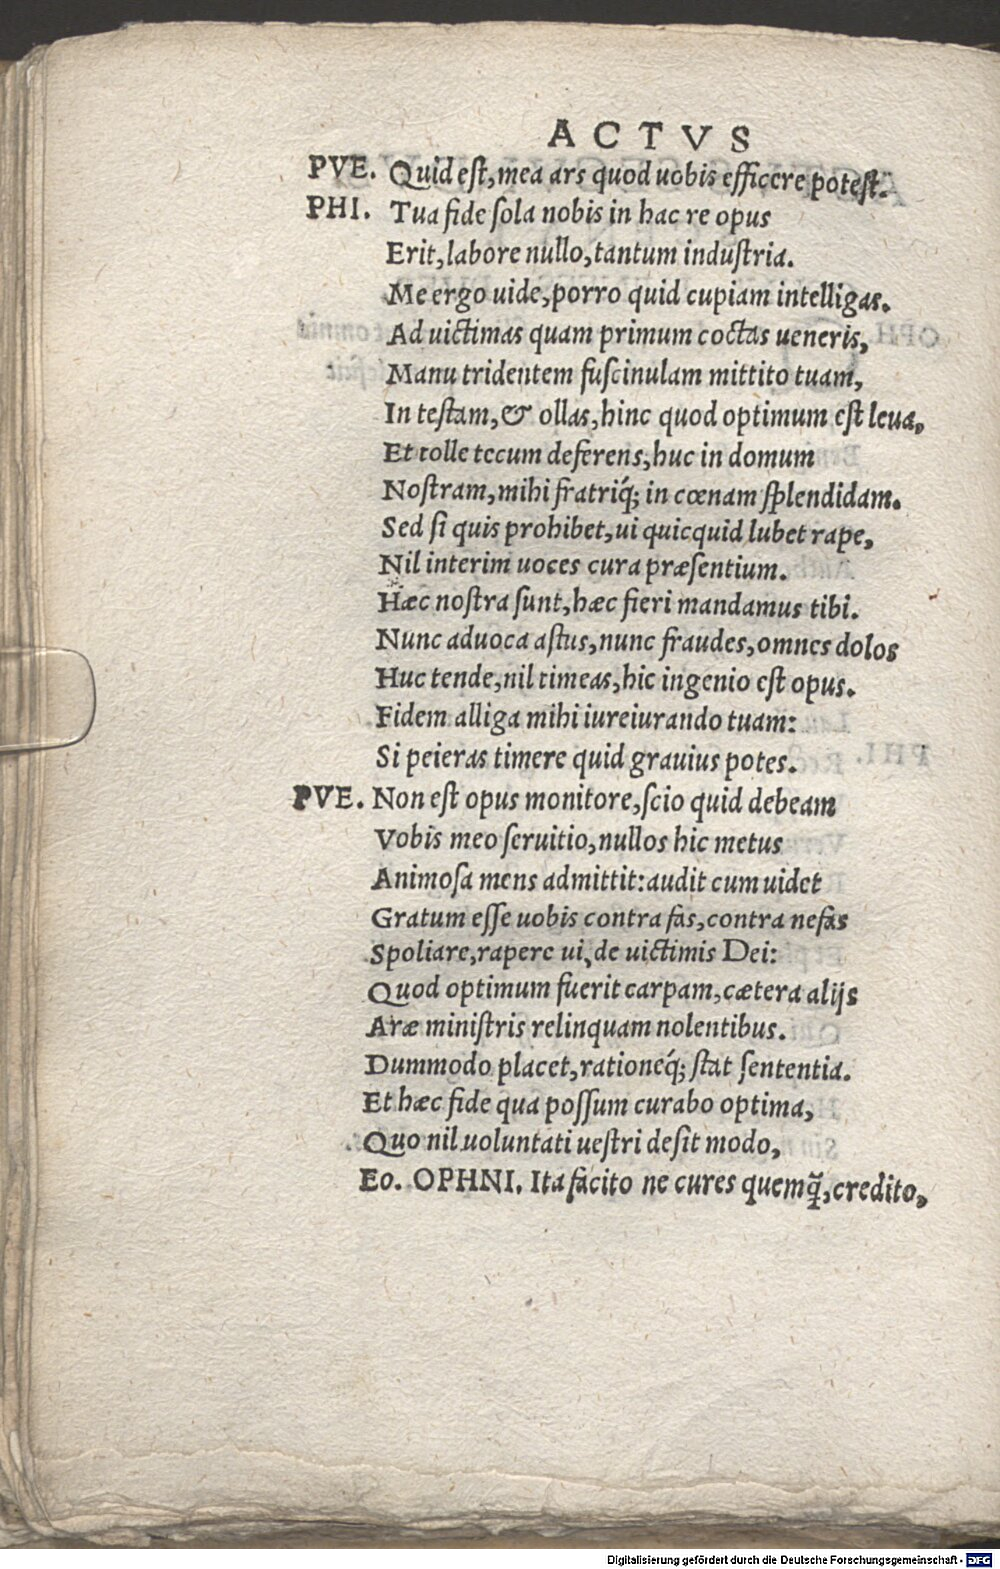 ACTVS
PVE. Quid eſt, mea ars quod uobis efficere poteſt.
PHI. Tua fide ſola nobis in hac re opus
Erit, labore nullo, tantum induſtria.
Me ergo uide, porro quid cupiam intelligas.
Ad uictimas quam primum coctas ueneris,
Manu tridentem fuſcinulam mittito tuam,
In teſtam, & ollas, hinc quod optimum eſt leua,
Et tolle tecum deferens, huc in domum
Noſtram, mihi fratriq́; in cœnam ſplendidam.
Sed ſi quis prohibet, ui quicquid lubet rape,
Nil interim uoces cura præſentium.
Hæc noſtra ſunt, hæc fieri mandamus tibi.
Nunc aduoca aſtus, nunc fraudes, omnes dolos
Huc tende, nil timeas, hic ingenio eſt opus.
Fidem alliga mihi iureiurando tuam:
Si peieras timere quid grauius potes.
PVE. Non eſt opus monitore, ſcio quid debeam
Vobis meo ſeruitio, nullos hic metus
Animoſa mens admittit: audit cum uidet
Gratum eſſe uobis contra fas, contra nefas
Spoliare, rapere ui, de uictimis Dei:
Quod optimum fuerit carpam, cætera alijs
Aræ miniſtris relinquam nolentibus.
Dummodo placet, rationeq́; ſtat ſententia.
Et hæc fide qua poſſum curabo optima,
Quo nil uoluntati ueſtri deſit modo,
Eo. OPHNI. Ita facito ne cures quemq̃, credito,
Digitalisierung gefördert durch die Deutsche Forschungsgemeinschaft - DFG